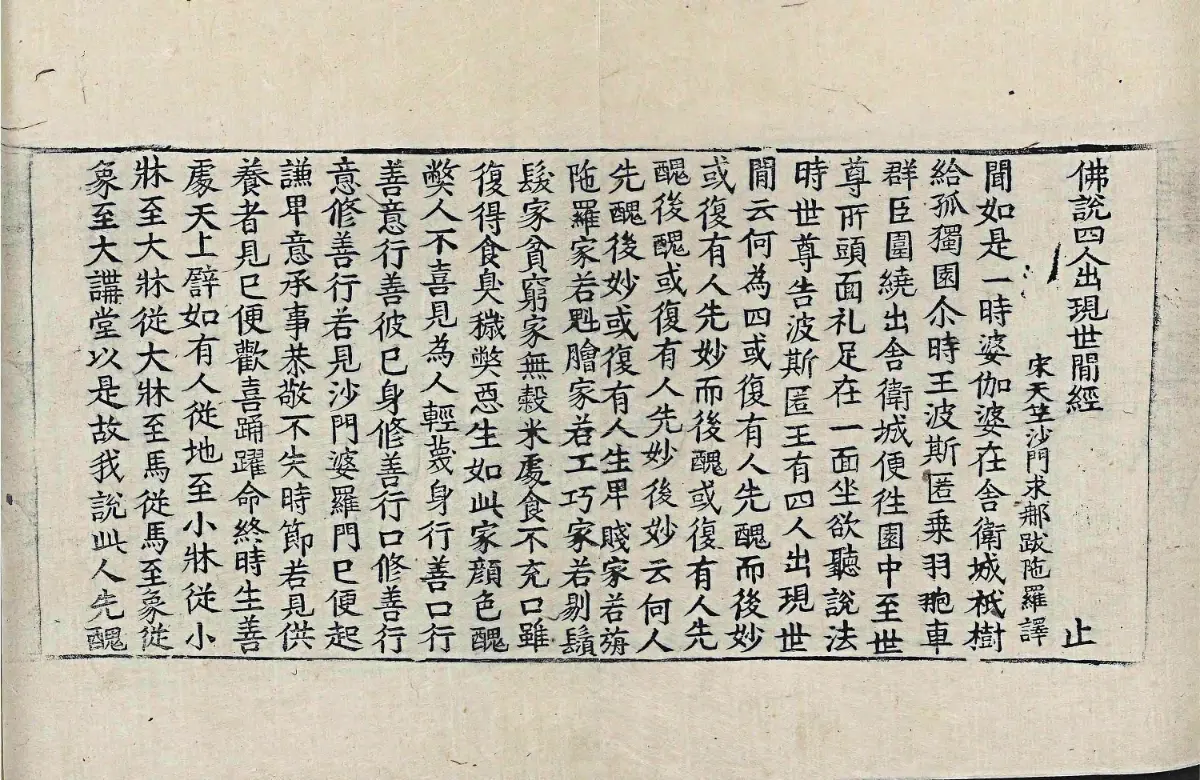 佛說四人出現世間經 止
宋天竺沙門求那跋陁羅譯
聞如是一時婆伽婆在舍衛城祇樹
給孤獨園尒時王波斯匿乗羽葆車
群臣圍繞出舍衛城便徃園中至世
尊所頭面礼足在一面坐欲聽說法
時世尊告波斯匿王有四人出現世
間云何為四或復有人先醜而後妙
或復有人先妙而後醜或復有人先
醜後醜或復有人先妙後妙云何人
先醜後妙或復有人生卑賤家若旃
陁羅家若魁膾家若工巧家若剔鬚
髮家貧窮家無穀米處食不充口雖
復得食臭穢弊惡生如此家顔色醜
弊人不喜見為人輕蔑身行善口行
善意行善彼已身修善行口修善行
意修善行若見沙門婆羅門已便起
謙卑意承事恭敬不失時節若見供
養者見已便歡喜踊躍命終時生善
處天上譬如有人從地至小牀從小
牀至大牀從大牀至馬從馬至象從
象至大講堂以是故我說此人先醜